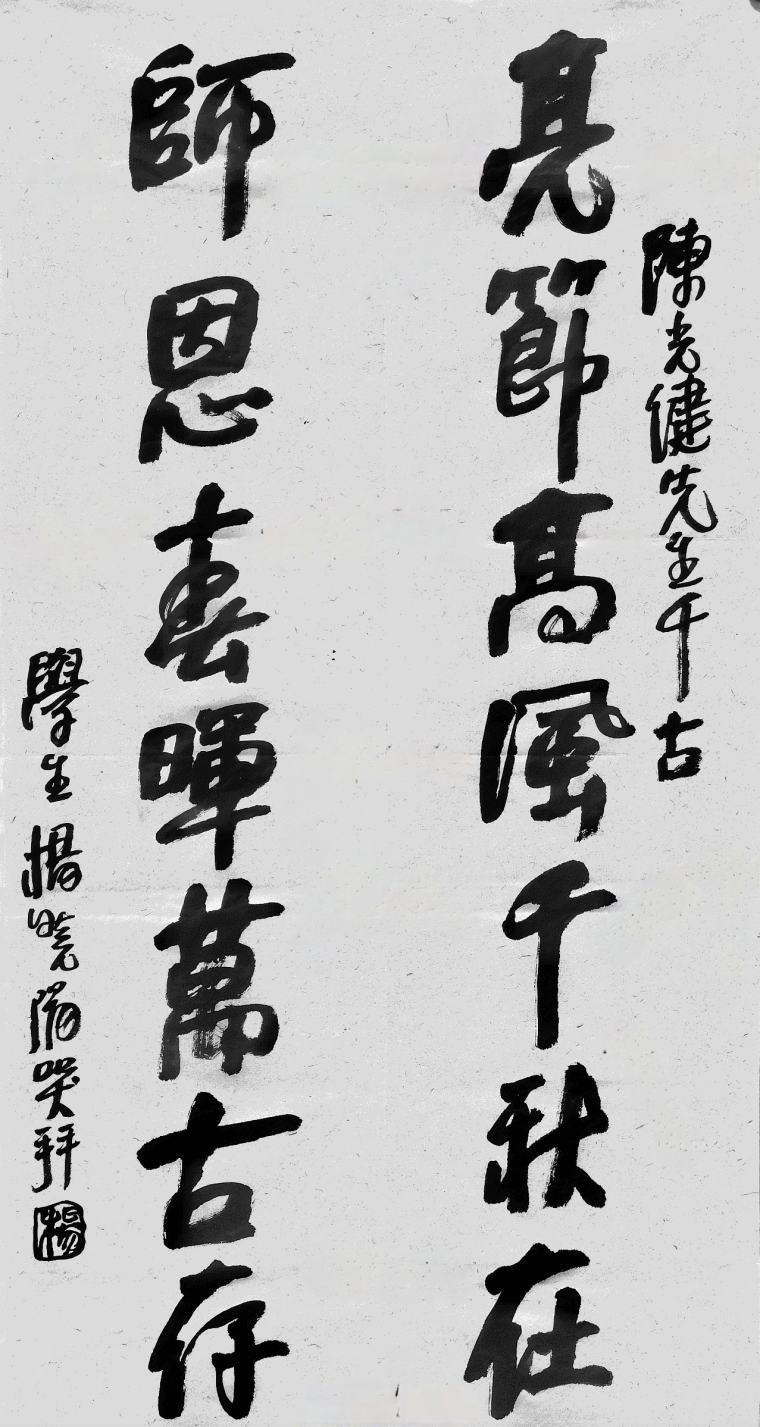 陳光健先生千古
亮節高風千秋在
師恩春暉萬古存
學生楊曉陽哭拜
楊